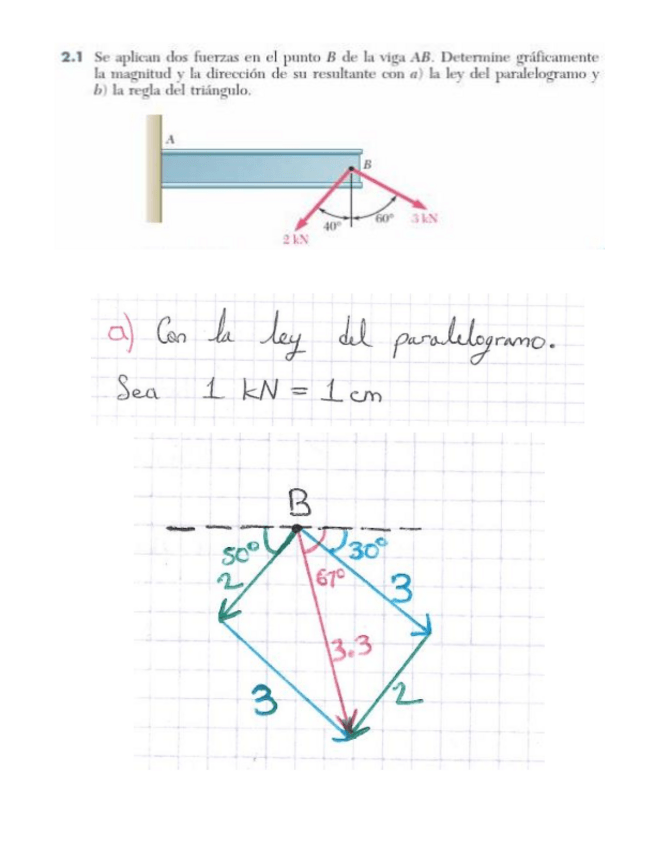 2.1 Se aplican dos fuerzas en el punto B de la viga AB. Determine gráficamente
la magnitud y la dirección de su resultante con a) la ley del paralelogramo y
b) la regla del triángulo.
A
B
40°
60°
3 kN
2 kN
a) Con la ley del paralelogramo.
Sea 1 kN = 1 cm
B
50°
30°
2
67°
3
3.3
3
2